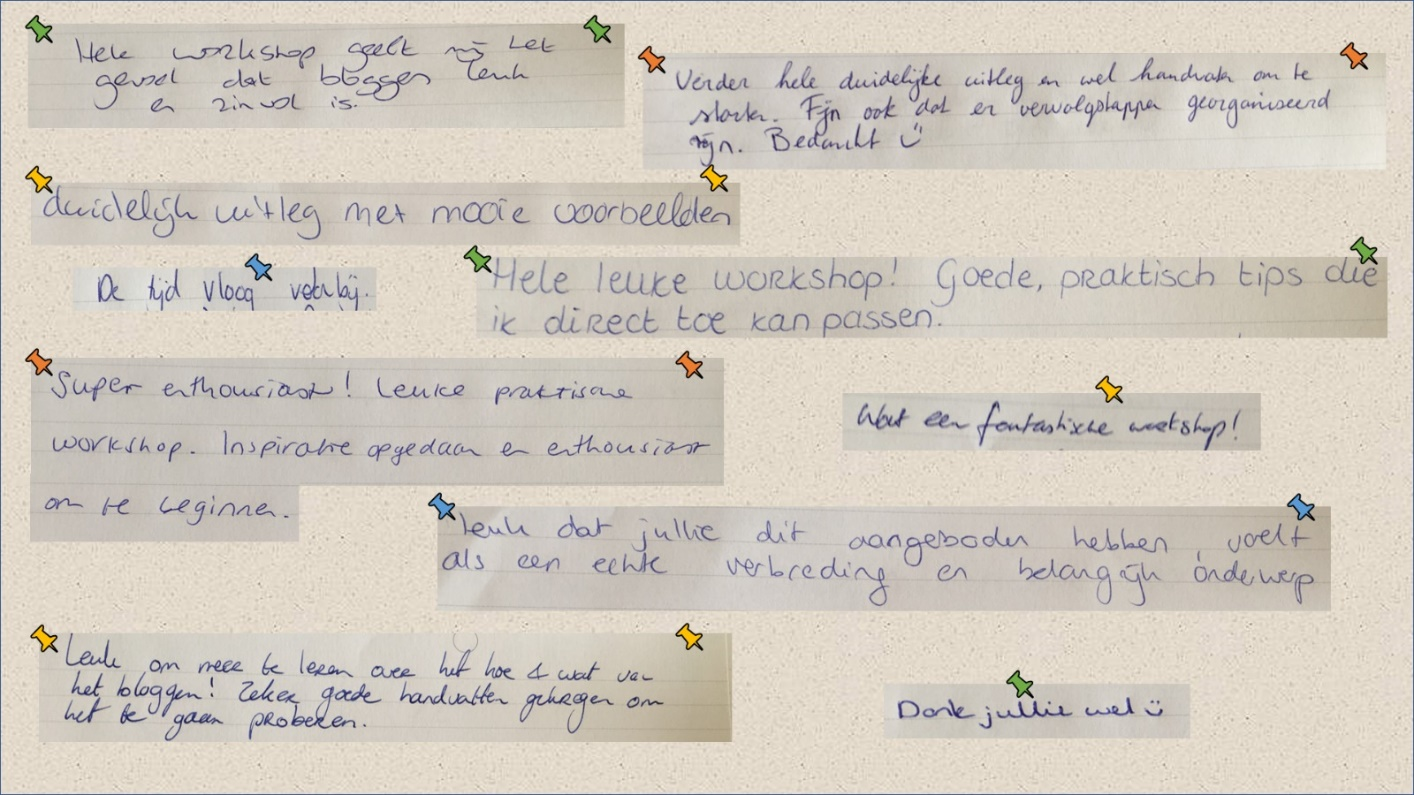 Hele workshop geeft mij het
gevoel dat bloggen leuk
en zinvol is.
Verder hele duidelijke uitleg en wel handvaten om te
starten. Fijn ook dat er vervolgstappen georganiseerd
zijn. Bedankt
duidelijk uitleg met mooie voorbeelden
De tijd vloog voorbij.
Hele leuke workshop! Goede, praktisch tips die
ik direct toe kan passen.
Super enthousiast! Leuke praktische
workshop. Inspiratie opgedaan en enthousiast
om te beginnen.
Wat een fantastische workshop!
Leuk dat jullie dit aangeboden hebben, voelt
als een echte verbreding en belangrijk onderwerp
Leuk om meer te leren over het hoe & wat van
het bloggen! Zeker goede handvatten gekregen om
het te gaan proberen.
Dank jullie wel